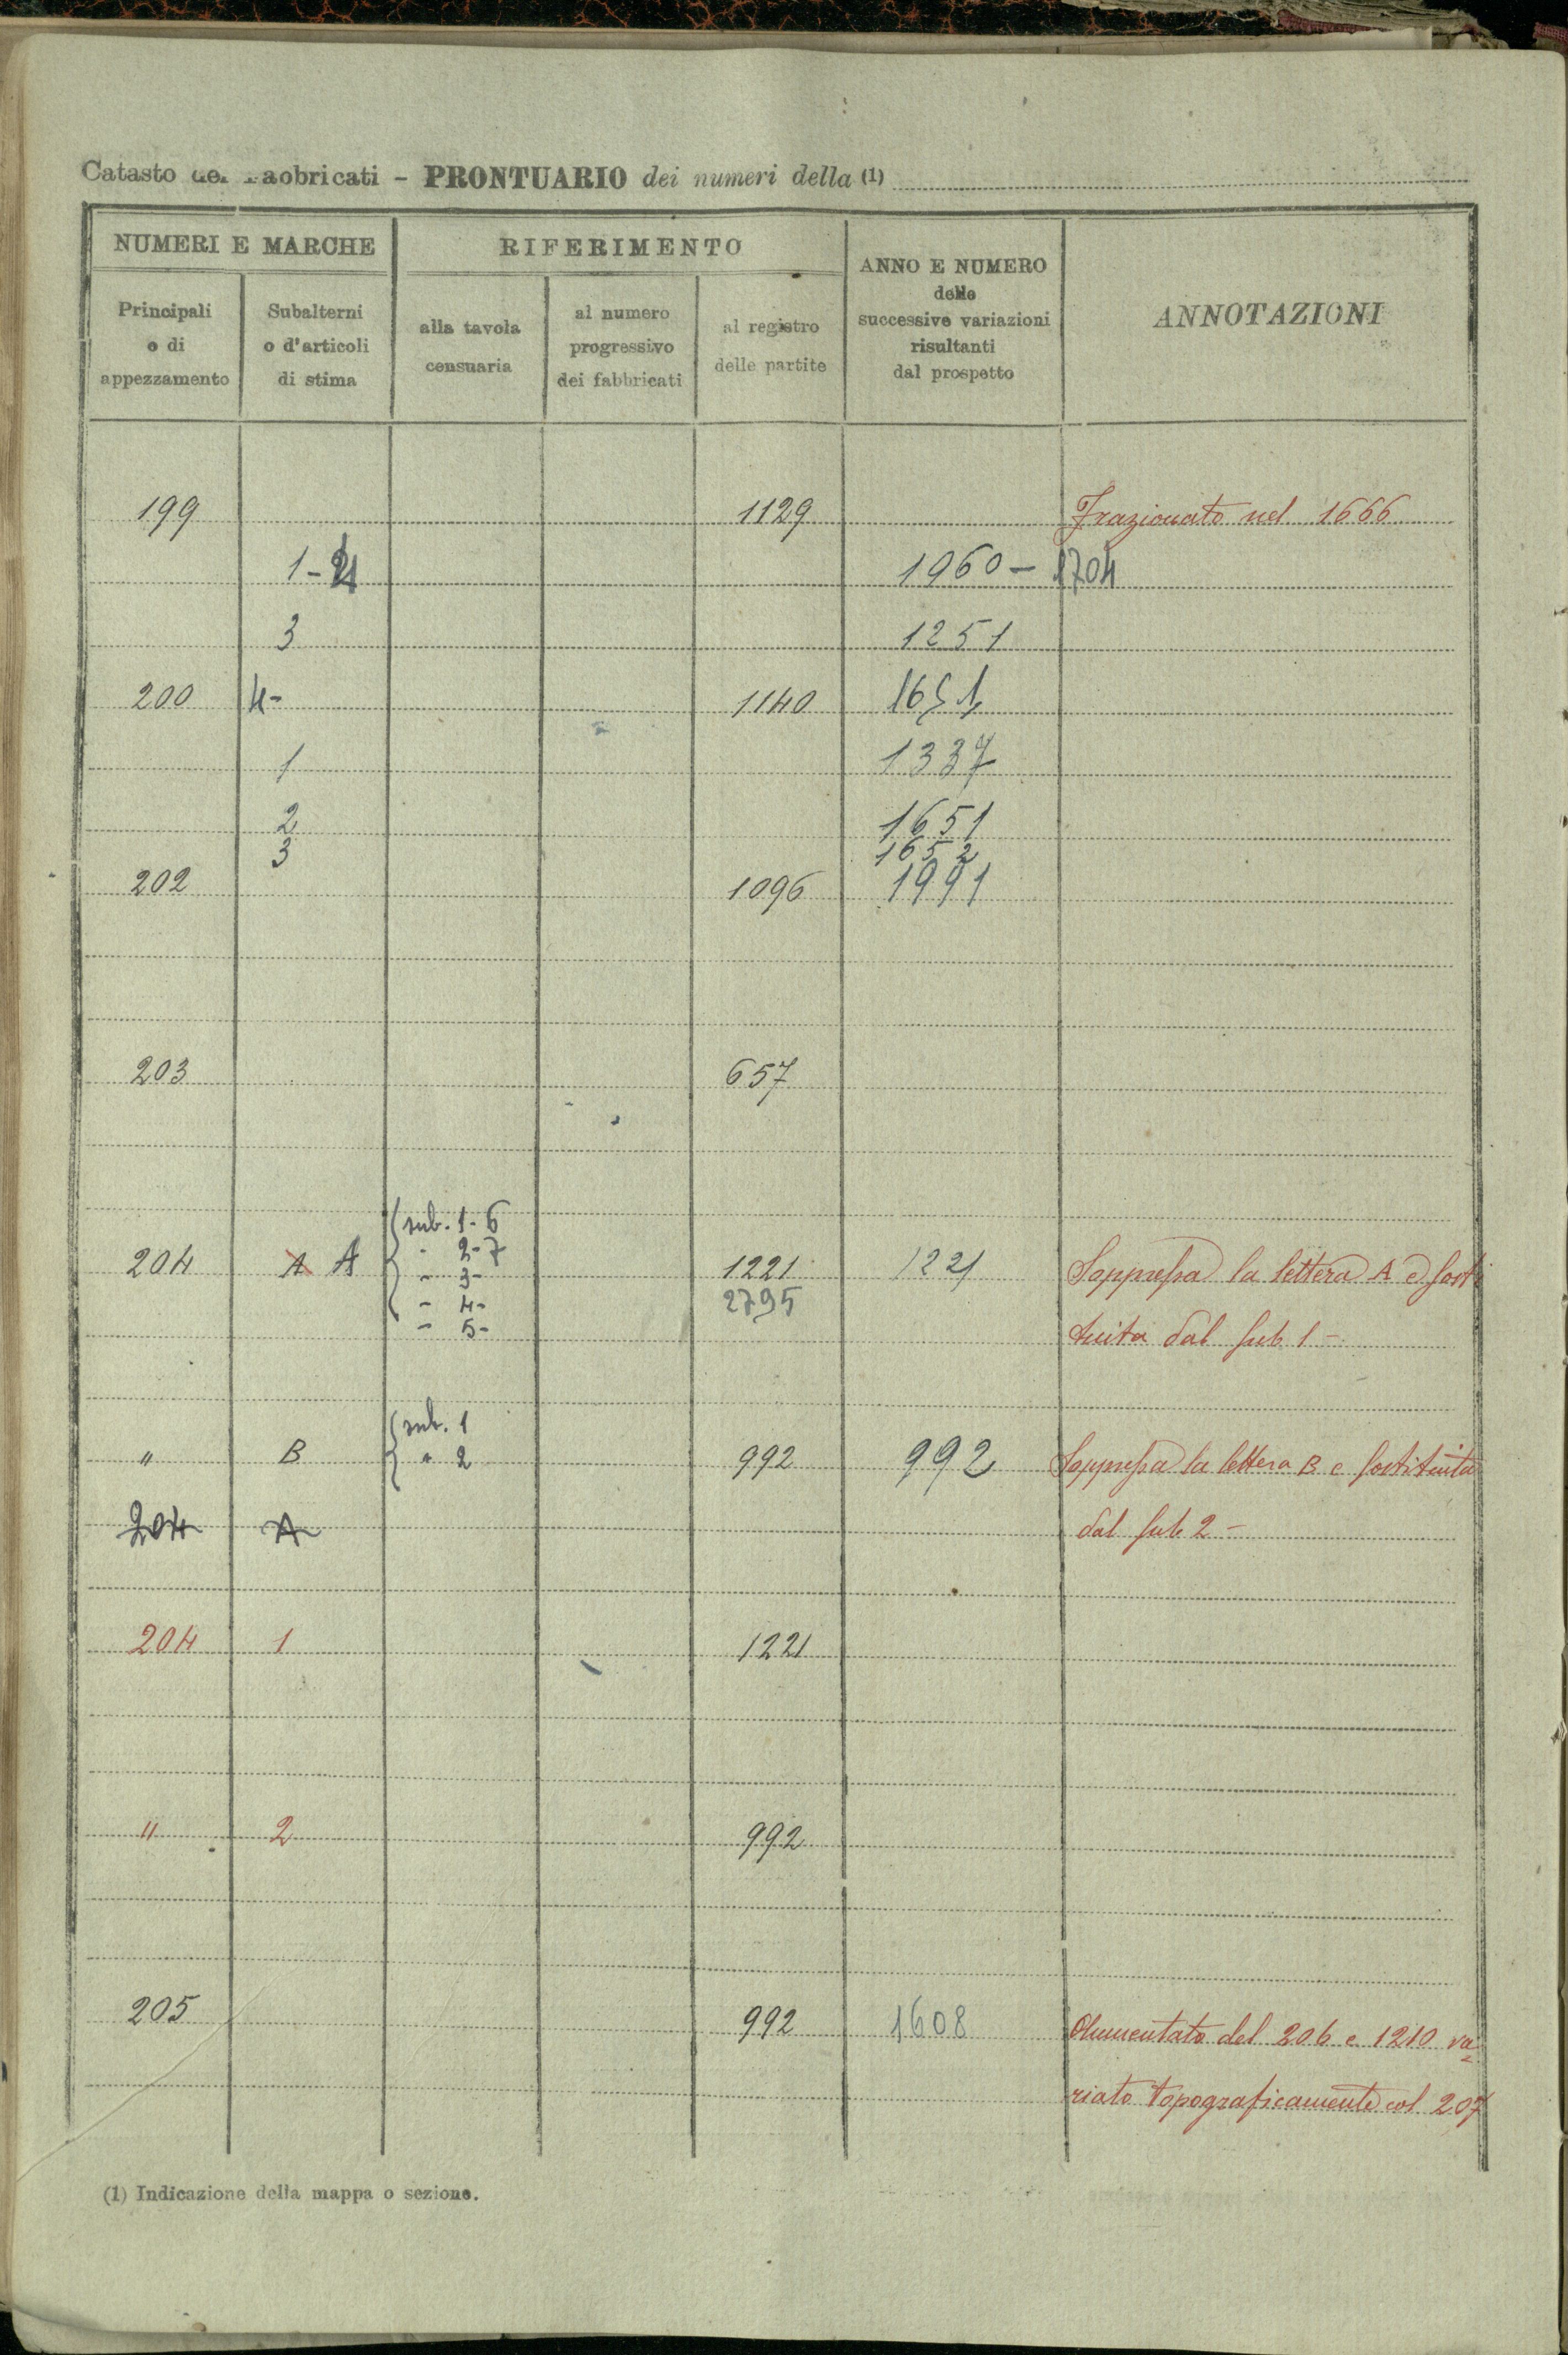 Catasto dei Fabbricati - PRONTUARIO dei numeri della (1)
NUMERI E MARCHE RIFERIMENTO ANNO E NUMERO delle successive variazioni risultanti dal prospetto ANNOTAZIONI
Principali o di appezzamento Subalterni o d'articoli di stima alla tavola censuaria al numero progressivo dei fabbricati al registro delle partite
199 1129 Frazionato nel 1666
1- 1960 - 1704
3 1251
200 4- 1140 1651
1 1337
2 1651
3 1652
202 1096 1991
203 657
sub. 1-6
- 2-7
204 A A - 3- 1221 1221 Soppressa la lettera A e sosti
- 4- 2795
- 5- tuita dal sub 1 -
sub. 1
" B " 2 992 992 Soppressa la lettera B e sostituita
204 A dal sub 2 -
204 1 1221
" 2 992
205 992 1608 Aumentato del 206 e 1210 va=
riato topograficamente col 207
(1) Indicazione della mappa o sezione.